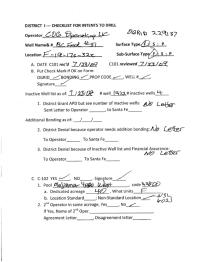 DISTRICT I --- CHECKLIST FOR INTENTS TO DRILL
Operator COG Operating LLC OGRID 229137
Well Name& # BC Fed #51 Surface Type F S P
Location Sub-Surface Type F S P
A. DATE C101 rec'd C101 reviewed
B. Put Check Mark if OK on Form:
OGRID , BONDING , PROP CODE , WELL #
Signature
Inactive Well list as of: # well # inactive wells 4
1. District Grant APD but see number of inactive wells: No Letter
Sent Letter to Operator to Santa Fe
Additional Bonding as of: /
2. District Denial because operator needs additional bonding: No Letter
To Operator To Santa Fe
3. District Denial because of Inactive Well list and Financial Assurance:
No Letter
To Operator To Santa Fe
C. C-102 YES , NO , Signature
1. Pool code
a. Dedicated acreage 40 , What units
b. Location Standard , Non-Standard Location
2. 2nd Operator in same acreage, Yes , No
If Yes, Name of 2nd Oper.
Agreement Letter , Disagreement letter